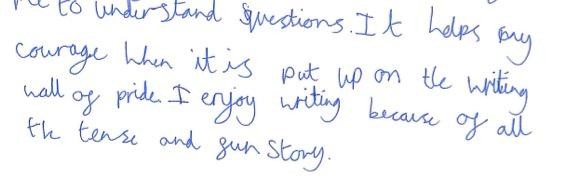 me to understand questions. It helps my
courage when it is put up on the writing
wall of pride. I enjoy writing because of all
the tense and fun story.